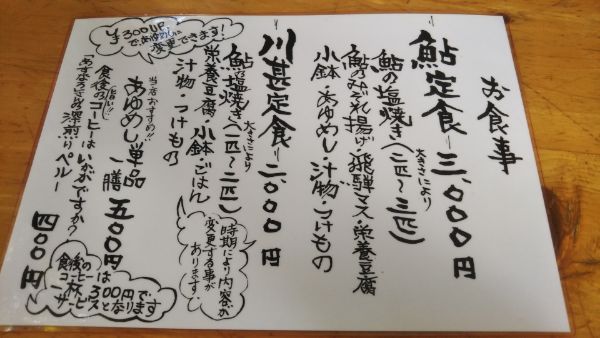 お食事
鮎定食 三、〇〇〇円
大きさにより
鮎の塩焼き(二匹〜三匹)
鮎のみぞれ揚げ・飛騨マス・栄養豆腐
小鉢・あゆめし・汁物・つけもの
川甚定食 二、〇〇〇円
大きさにより
鮎の塩焼き(一匹〜二匹)
栄養豆腐・小鉢・ごはん
汁物・つけもの
¥300UP
であゆめしに
変更できます!
時期により内容が
変更する事が
あります。
当店おすすめ!!
あゆめし単品 一膳 五〇〇円
食後のコーヒーはいかがですか?
深煎りペルー 四〇〇円
食後の
コーヒーは